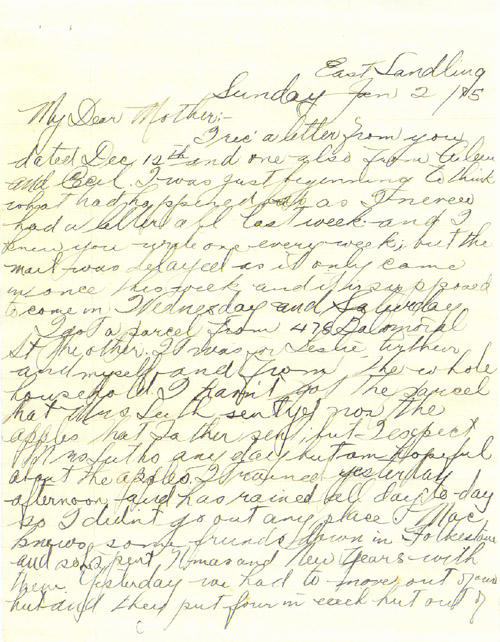 East Sandling
Sunday Jan 2/15
My Dear Mother:-
I rec'd a letter from you
dated Dec 12th and one also from Aileen
and Cecil. I was just beginning to think
what had happened as I never
had a letter all last week and I
knew you write one every week; but the
mail was delayed as it only came
in once this week and it is supposed
to come in Wednesday and Saturday
I got a parcel from 478 Balmoral
St the other. It was for Leslie, Arthur
and myself and from the whole
household. I hav'nt got the parcel
that Mrs sent yet nor the
apples that Father sent but I expect
Mrs any day but am hopeful
about the apples. It rained yesterday
afternoon and has rained all day to-day
so I didn't go out any place. Mac
knows some friends down in Folkestone
and so spent Xmas and New Years with
them. Yesterday we had to move out of our
hut and they put four in each hut out of